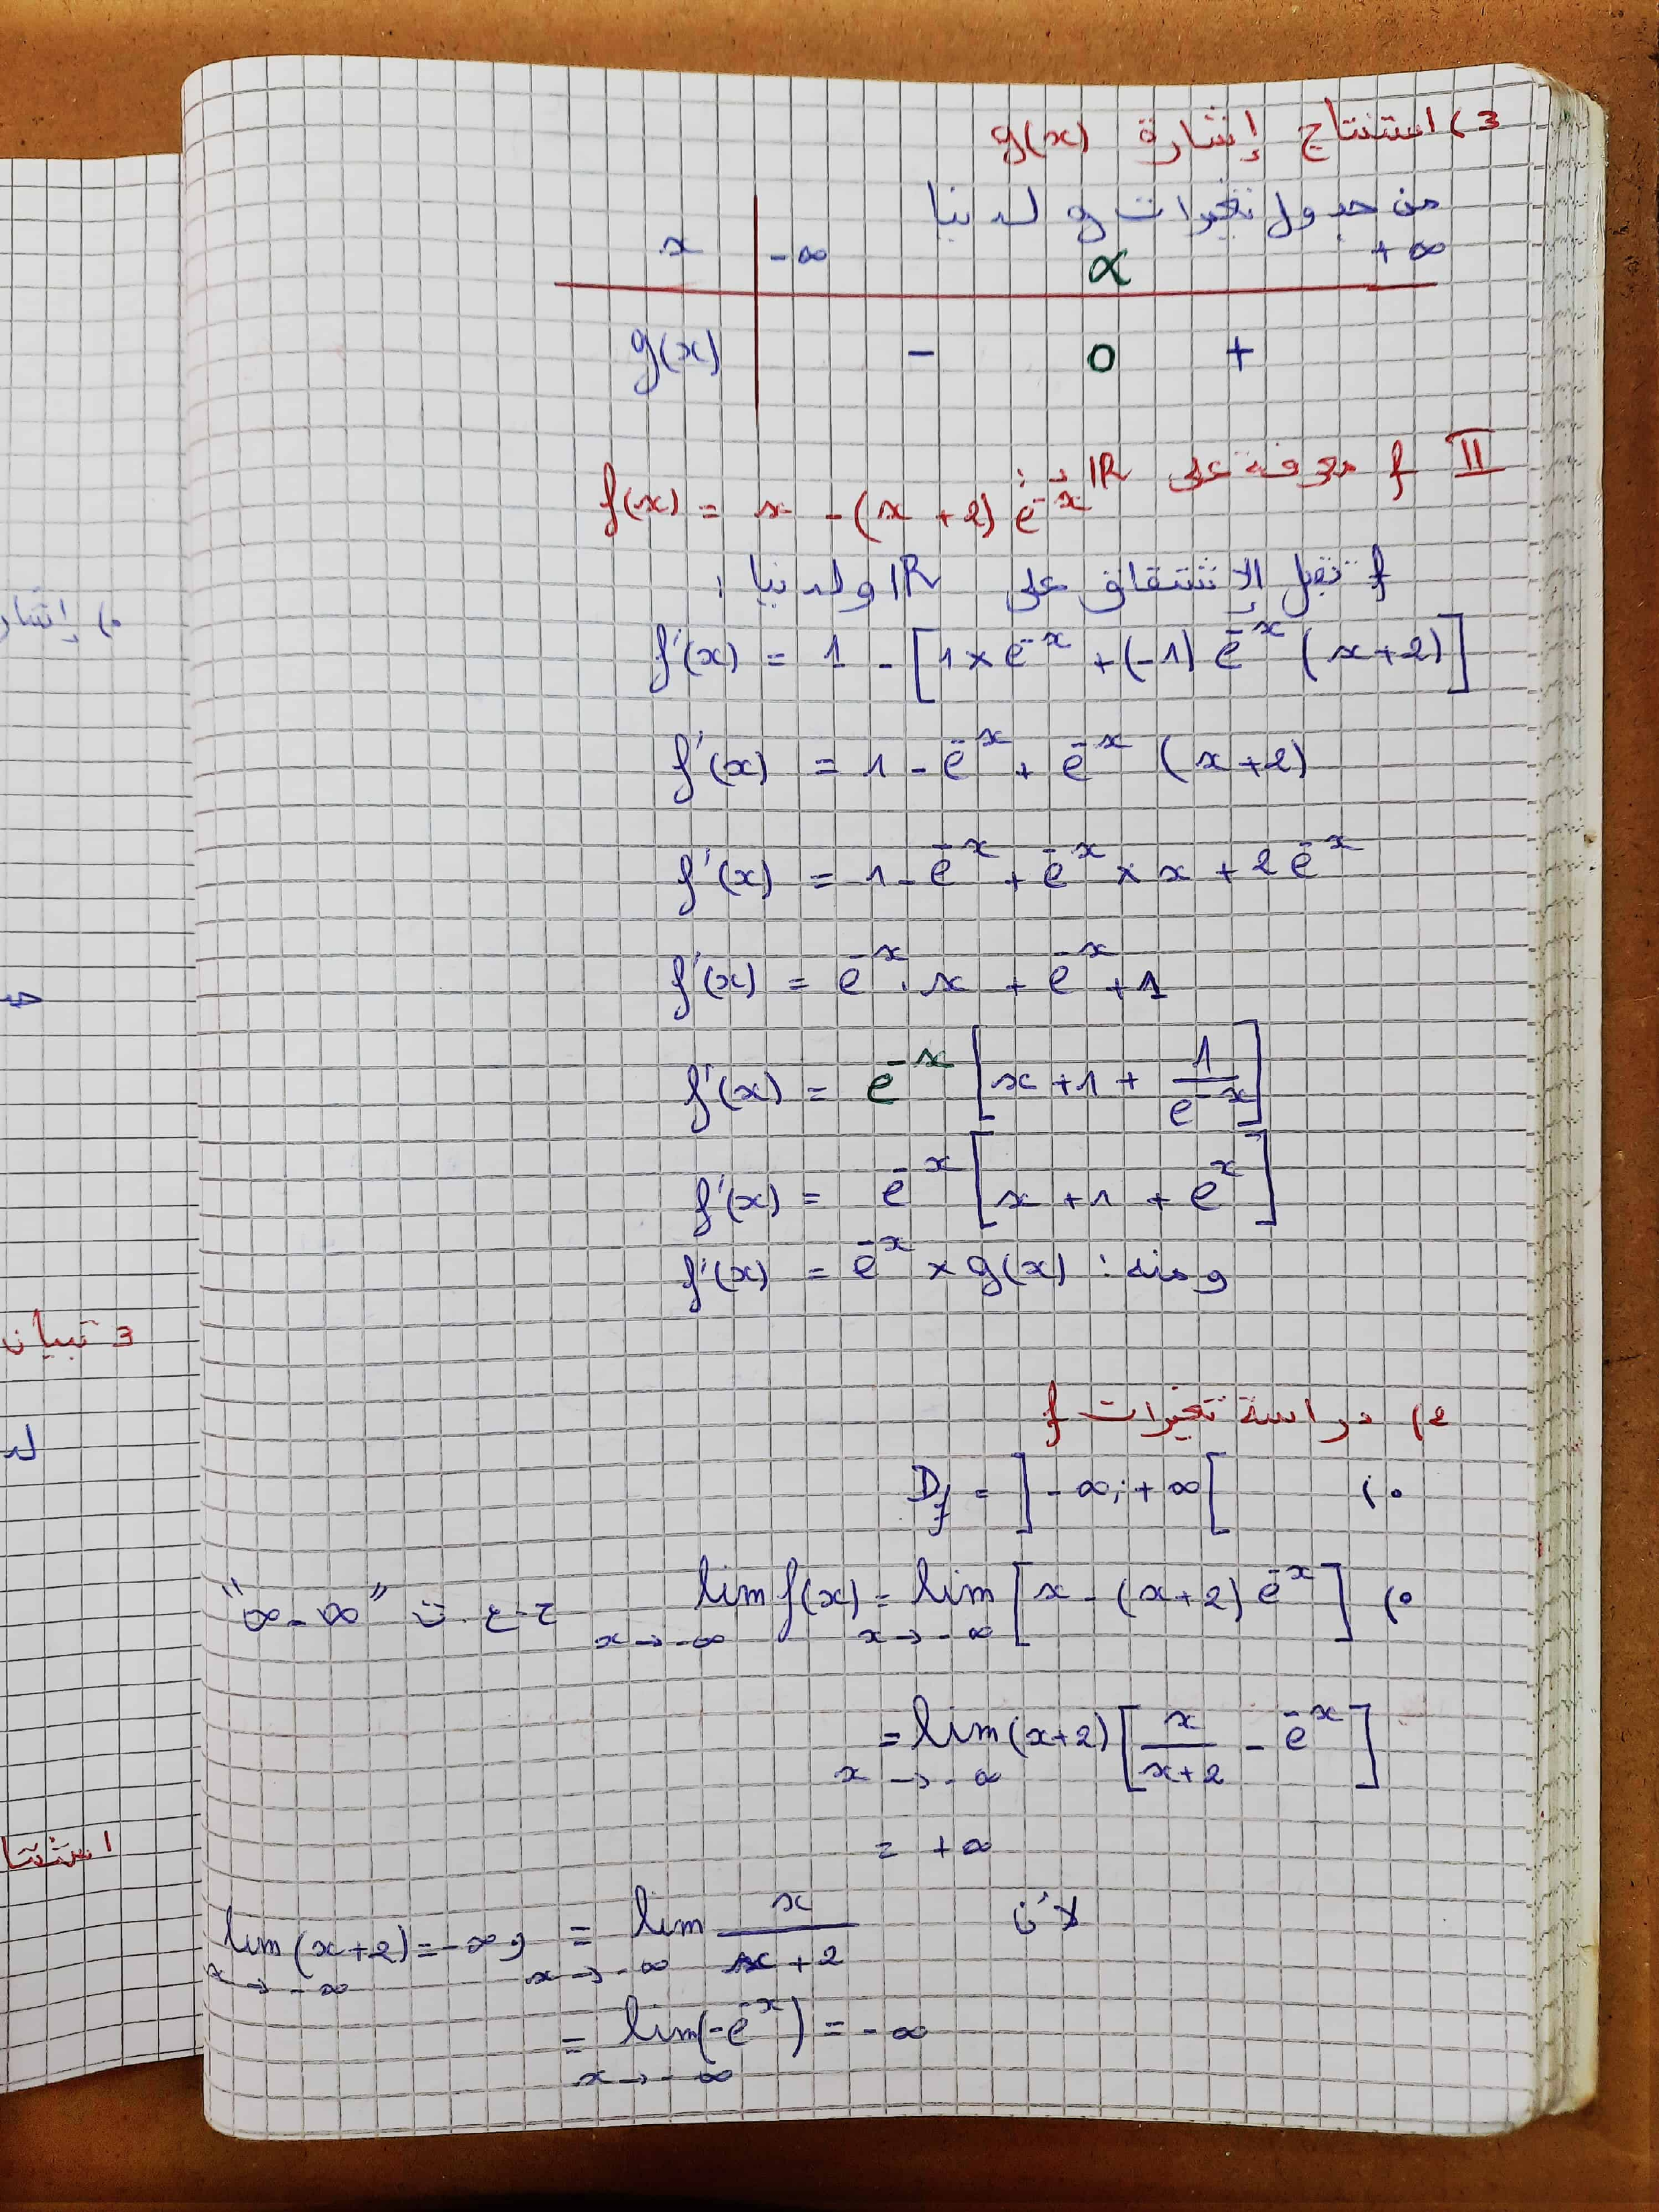 3) استنتاج إشارة g(x)
من جدول تغيرات g لدينا
x -∞ α +∞
g(x) - 0 +
II f معرفة على IR بـ:
f(x) = x - (x+2) e^-x
f تقبل الإشتقاق على IR ولدينا :
f'(x) = 1 - [1×e^-x + (-1) e^-x (x+2)]
f'(x) = 1 - e^-x + e^-x (x+2)
f'(x) = 1 - e^-x + e^-x × x + 2 e^-x
f'(x) = e^-x . x + e^-x + 1
f'(x) = e^-x [x + 1 + 1/e^-x]
f'(x) = e^-x [x + 1 + e^x]
ومنه : f'(x) = e^-x × g(x)
2) دراسة تغيرات f
•) Df = ]-∞; +∞[
•) lim x→-∞ f(x) = lim x→-∞ [x - (x+2) e^-x] ح.ع.ت "∞-∞"
= lim x→-∞ (x+2) [x/(x+2) - e^-x]
= +∞
لأن = lim x→-∞ x/(x+2) و lim x→-∞ (x+2) = -∞
= lim x→-∞ (-e^-x) = -∞
•) إشار
3 تبيان
لد